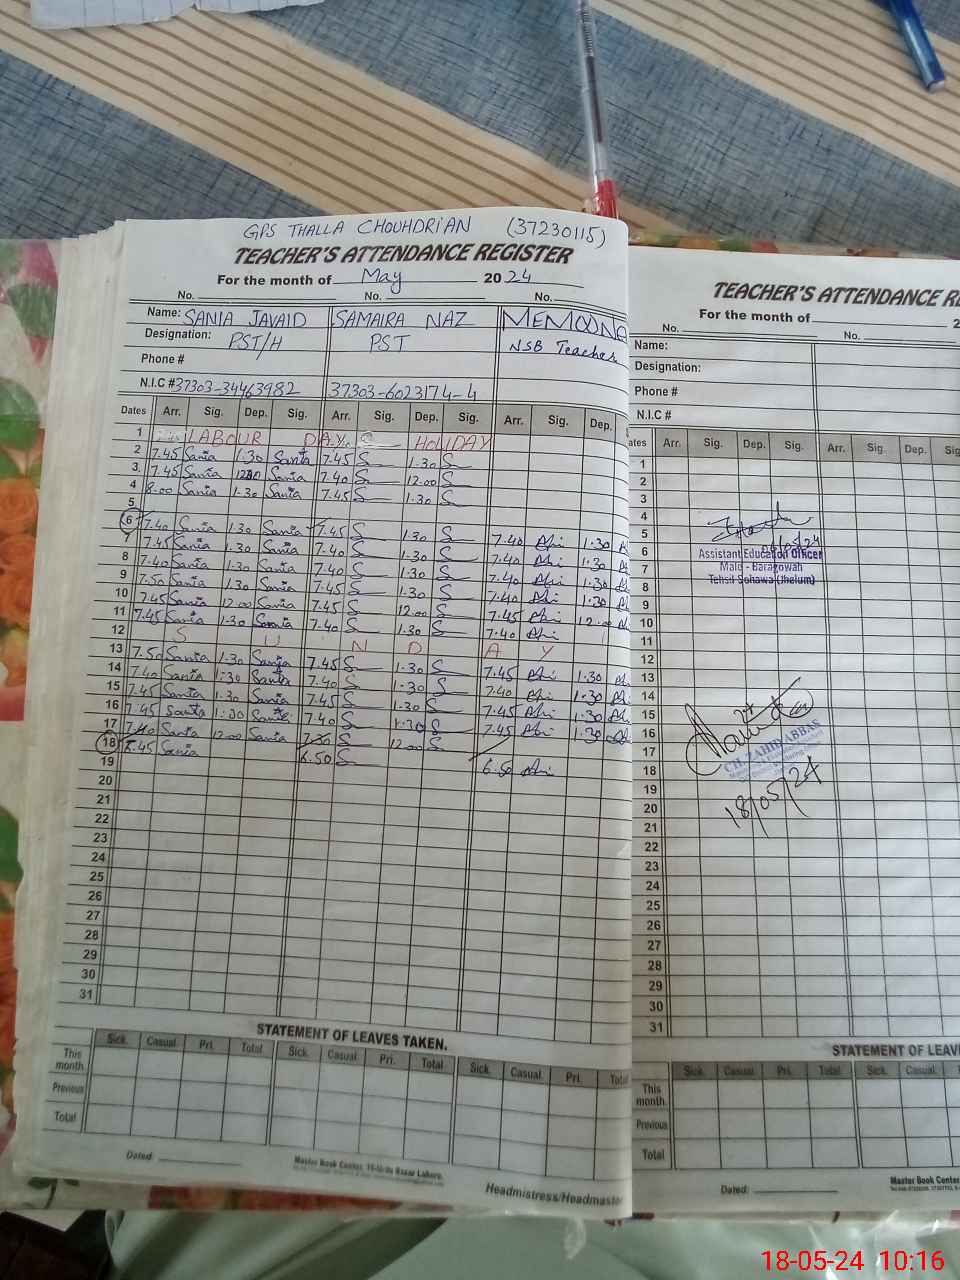 GPS THALLA CHOUHDRIAN (37230115)
TEACHER'S ATTENDANCE REGISTER
For the month of May 2024
No. No. No.
Name: SANIA JAVAID SAMAIRA NAZ MEMOONA
Designation: PST/H PST NSB Teacher
Phone #
N.I.C # 37303-34463982 37303-6023174-4
Dates Arr. Sig. Dep. Sig. Arr. Sig. Dep. Sig. Arr. Sig. Dep.
1 LABOUR DAY HOLIDAY
2 7.45 Sania 1.30 Sania 7.45 S 1.30 S
3 7.45 Sania 12.00 Sania 7.40 S 12.00 S
4 8.00 Sania 1.30 Sania 7.45 S 1.30 S
5
6 7.40 Sania 1.30 Sania 7.45 S 1.30 S 7.40 1.30
7 7.45 Sania 1.30 Sania 7.40 S 1.30 S 7.40 1.30
8 7.40 Sania 1.30 Sania 7.40 S 1.30 S 7.40 1.30
9 7.50 Sania 1.30 Sania 7.45 S 1.30 S 7.40 1.30
10 7.45 Sania 12.00 Sania 7.45 S 12.00 S 7.45 12.00
11 7.45 Sania 1.30 Sania 7.40 S 1.30 S 7.40
12 S U N D A Y
13 7.50 Sania 1.30 Sania 7.45 S 1.30 S 7.45 1.30
14 7.40 Sania 1:30 Sania 7.40 S 1.30 S 7.40 1.30
15 7.45 Sania 1.30 Sania 7.45 S 1.30 S 7.45 1.30
16 7.45 Sania 1:30 Sania 7.40 S 1.30 S 7.45 1.30
17 7.40 Sania 12.00 Sania 7.30 S 12.00 S
18 7.45 Sania 6.50 S 6.50
19
20
21
22
23
24
25
26
27
28
29
30
31
STATEMENT OF LEAVES TAKEN.
Sick. Casual. Pri. Total Sick. Casual. Pri. Total Sick. Casual. Pri. Total
This month.
Previous
Total
Dated:
Master Book Center, Lahore.
Headmistress/Headmaster
TEACHER'S ATTENDANCE RE
For the month of 2
No. No.
Name:
Designation:
Phone #
N.I.C #
ates Arr. Sig. Dep. Sig. Arr. Sig. Dep. Sig
1
2
3
4
5
6
7
8
9
10
11
12
13
14
15
16
17
18
19
20
21
22
23
24
25
26
27
28
29
30
31
Assistant Education Officer
Male - Baragowah
Tehsil Sohawa (Jhelum)
CH. ZAHID ABBAS
18/05/24
STATEMENT OF LEAV
Sick. Casual. Pri. Total Sick. Casual.
This month.
Previous
Total
Dated:
Master Book Center
18-05-24 10:16